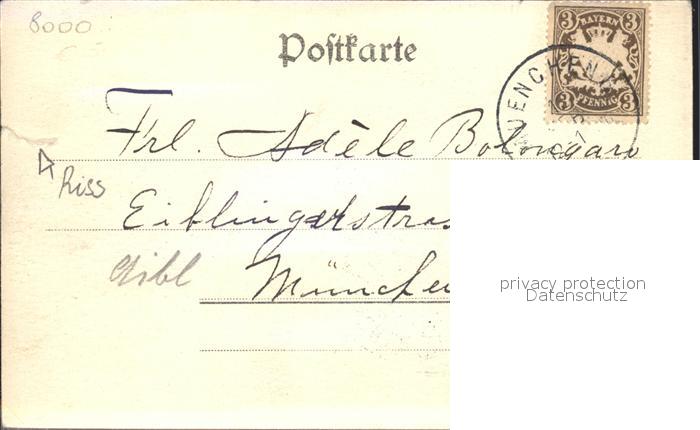 8000
Postkarte
3 BAYERN 3
3 PFENNIG 3
MUENCHEN
Frl. Adèle Bolongaro
Riss
Eiblingerstras
München
privacy protection
Datenschutz